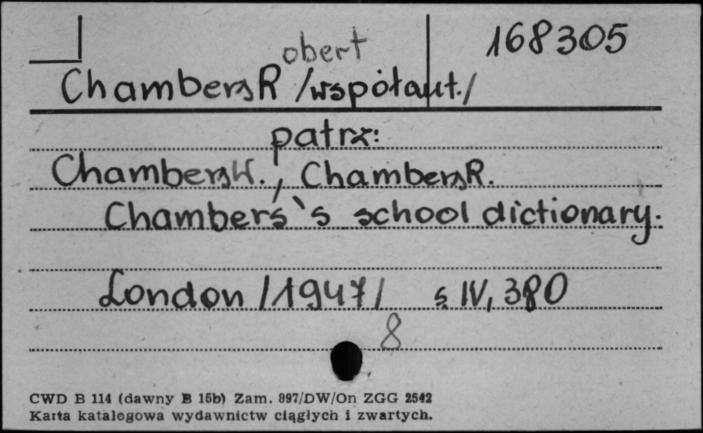 168305
obert
Chambers R /współaut./
patrz:
Chambers W., Chambers R.
Chambers's school dictionary.
London /1947/ s IV, 380
8
CWD B 114 (dawny B 15b) Zam. 897/DW/On ZGG 2542
Karta katalogowa wydawnictw ciągłych i zwartych.